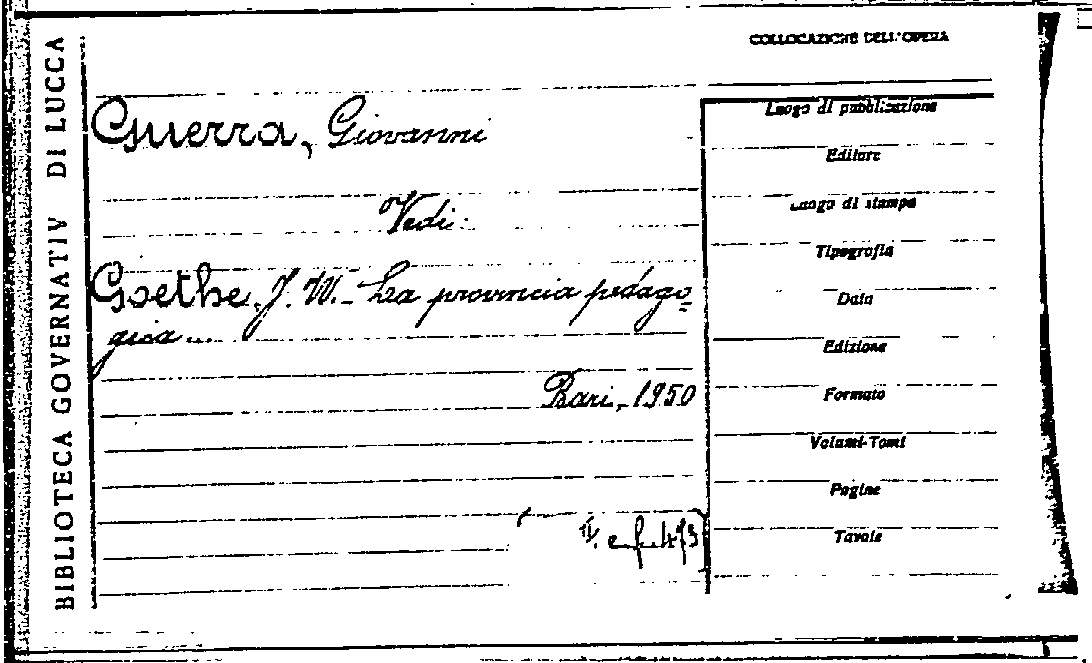 BIBLIOTECA GOVERNATIV DI LUCCA
COLLOCAZIONE DELL'OPERA
Guerra, Giovanni
Vedi:
Goethe J. W. - La provincia pedago-
gica ...
Bari, 1950
Luogo di pubblicazione
Editore
Luogo di stampa
Tipografia
Data
Edizione
Formato
Volumi-Tomi
Pagine
Tavole